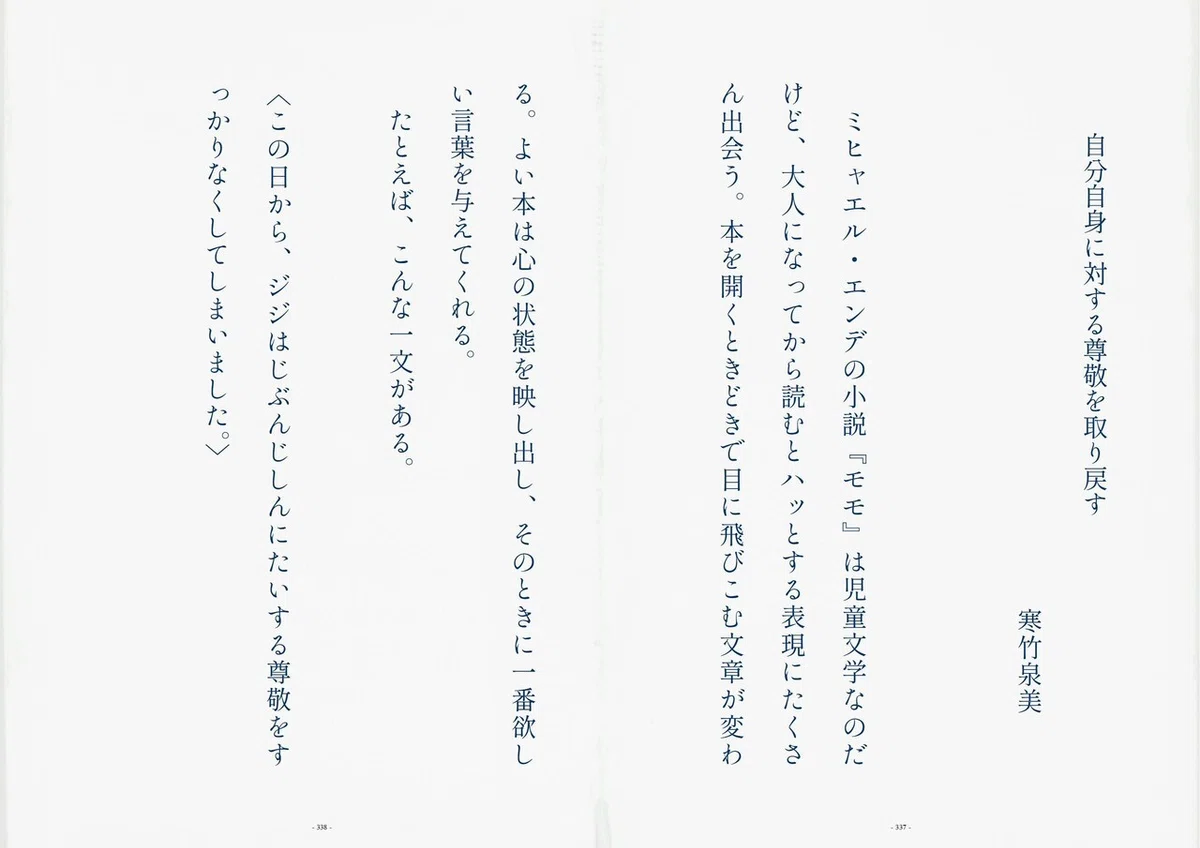 自分自身に対する尊敬を取り戻す
寒竹泉美
ミヒャエル・エンデの小説『モモ』は児童文学なのだ
けど、大人になってから読むとハッとする表現にたくさ
ん出会う。本を開くときどきで目に飛びこむ文章が変わ
- 337 -
る。よい本は心の状態を映し出し、そのときに一番欲し
い言葉を与えてくれる。
たとえば、こんな一文がある。
〈この日から、ジジはじぶんじしんにたいする尊敬をす
っかりなくしてしまいました。〉
- 338 -